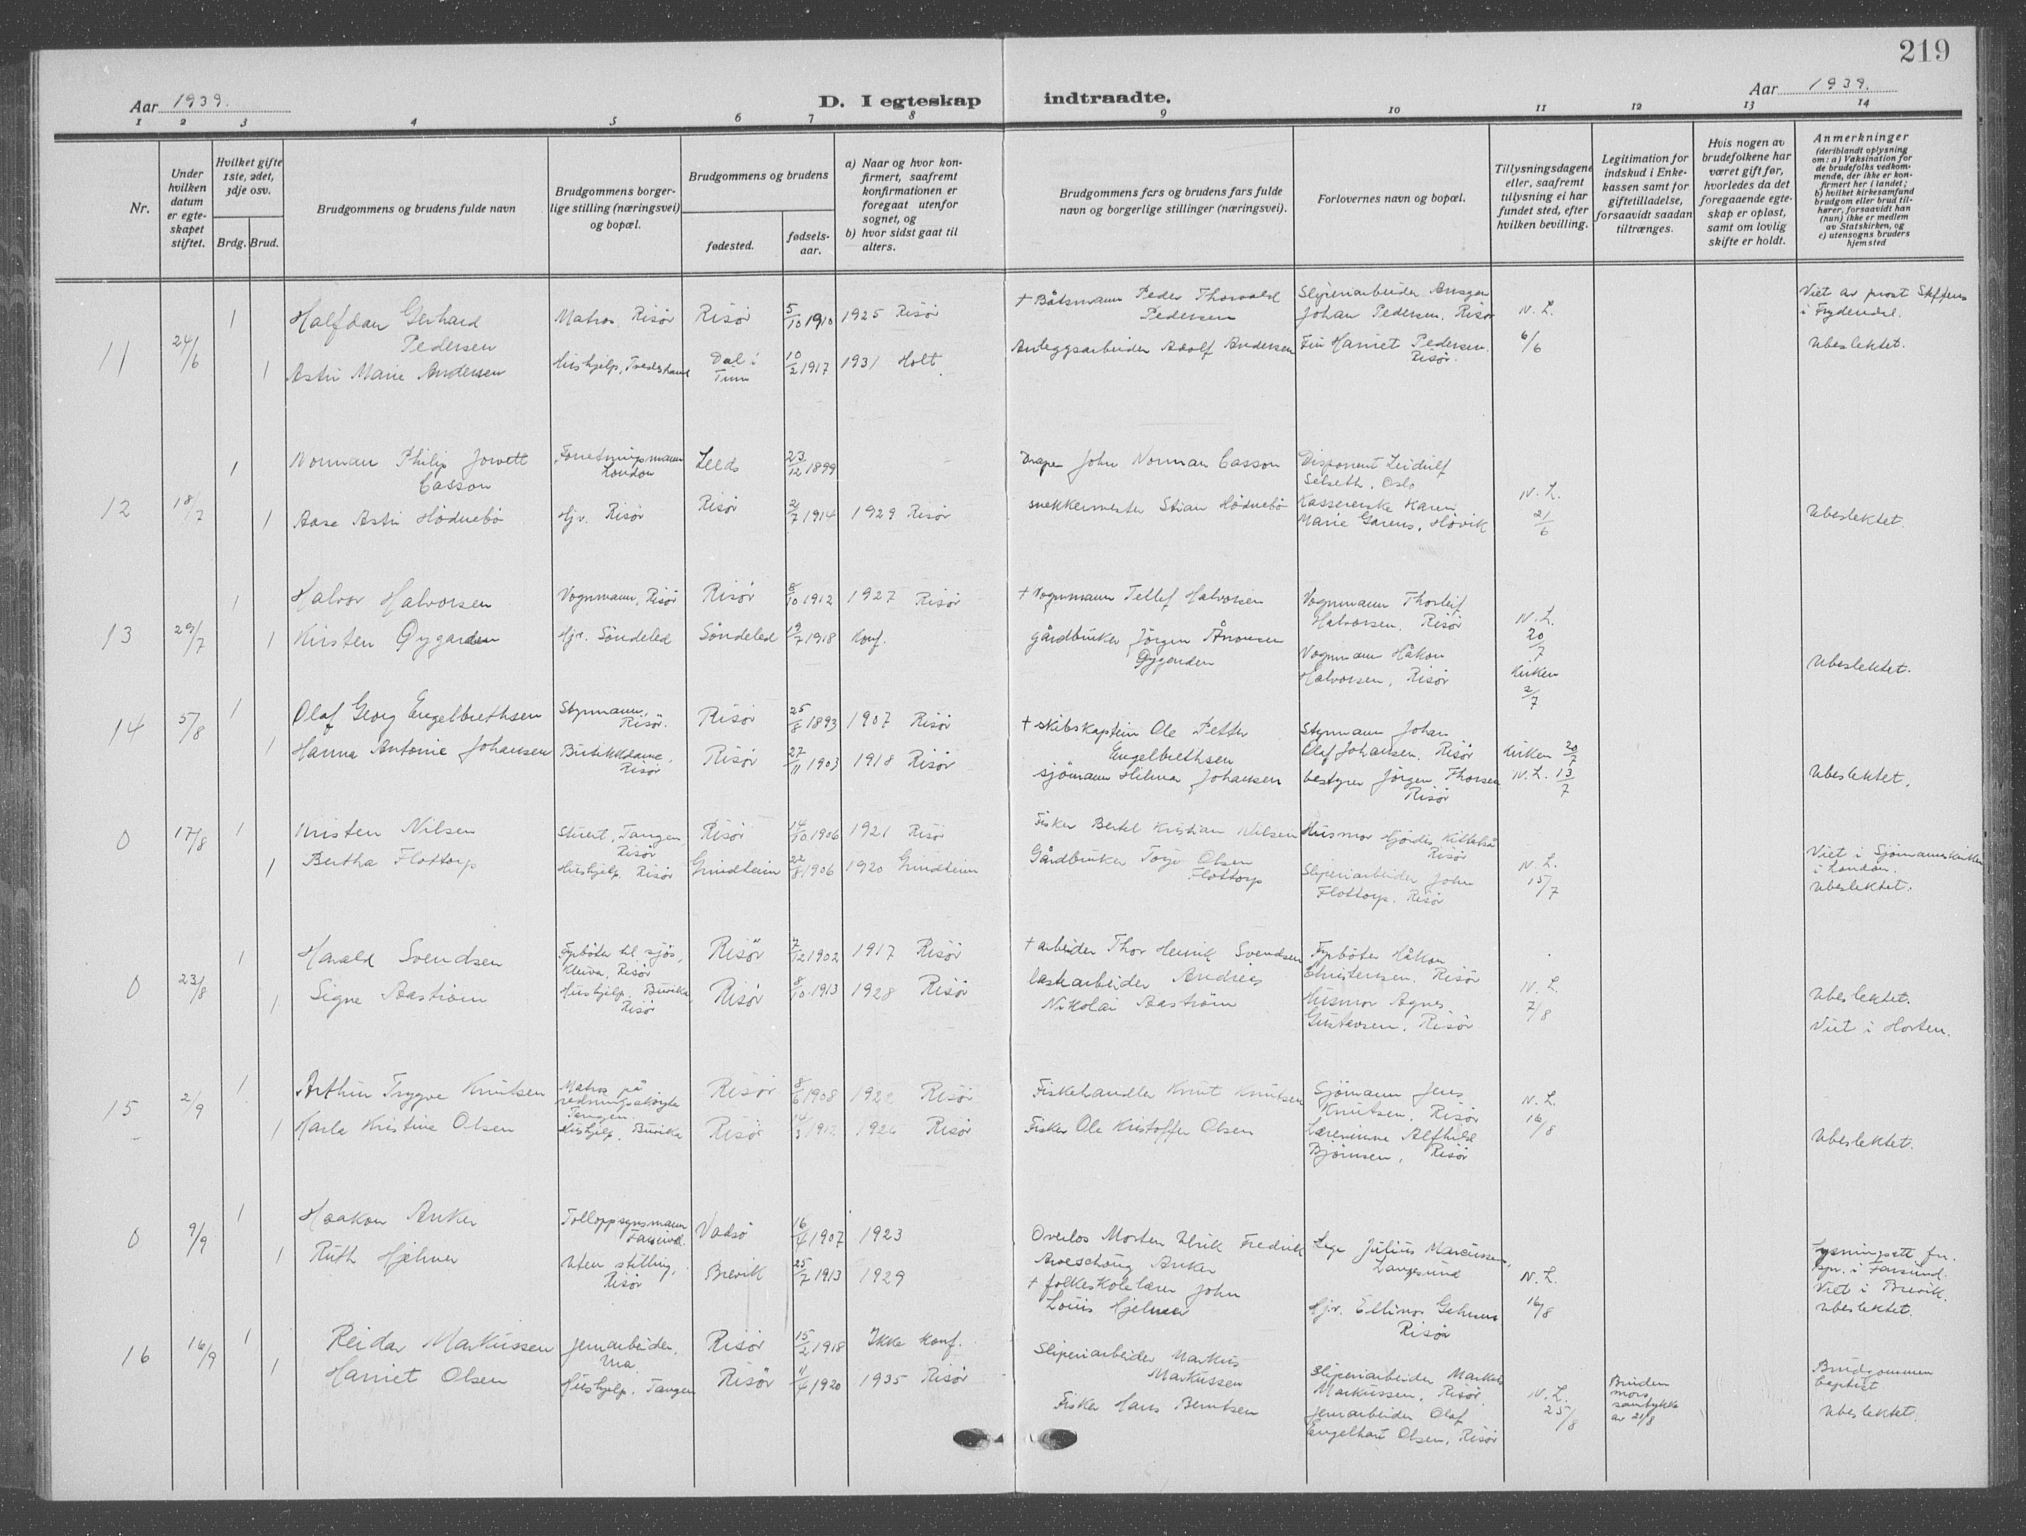 219
Aar 1939.
D. I egteskap indtraadte.
Aar 1939.
1 2 3 4 5 6 7 8 9 10 11 12 13 14
Nr.
Under hvilken datum er egteskapet stiftet.
Hvilket gifte 1ste, 2det, 3dje osv.
Brdg. Brud.
Brudgommens og brudens fulde navn
Brudgommens borgerlige stilling (næringsvei) og bopæl.
Brudgommens og brudens
fødested.
fødselsaar.
a) Naar og hvor konfirmert, saafremt konfirmationen er foregaat utenfor sognet, og
b) hvor sidst gaat til alters.
Brudgommens fars og brudens fars fulde navn og borgerlige stillinger (næringsvei).
Forlovernes navn og bopæl.
Tillysningsdagene eller, saafremt tillysning ei har fundet sted, efter hvilken bevilling.
Legitimation for indskud i Enkekassen samt for giftetilladelse, forsaavidt saadan tiltrænges.
Hvis nogen av brudefolkene har været gift før, hvorledes da det foregaaende egteskap er opløst, samt om lovlig skifte er holdt.
Anmerkninger
(deriblandt oplysning om: a) Vaksination for de brudefolks vedkommende, der ikke er konfirmert her i landet; b) hvilket kirkesamfund brudgom eller brud tilhører, forsaavidt han (hun) ikke er medlem av Statskirken, og c) utensogns bruders hjemsted
11 24/6
1 Halfdan Gerhard Pedersen Matros, Risör Risör 5/10 1910 1925 Risör + Båtsmann Peder Thorvald Pedersen Sliperiarbeider Ansgar Johan Pedersen, Risör N. L. 6/6 Viet av prost Steffens i Frydendal.
1 Astri Marie Andersen Hushjelp, Tvedestrand 10/2 1917 1931 Holt Anleggsarbeider Adolf Andersen Harriet Pedersen. Risör. Ubeslektet.
12 18/7
1 Norman Philip Jowett Casson Forretningsmann London Leeds 23/12 1899 Draper John Norman Casson Disponent Leidulf Selseth, Oslo N. L. 21/6
1 Aase Astri Hödnebö Hjv. Risör Risör 2/7 1914 1929 Risör snekkermester Stian Hödnebö Kassererske Karen Marie Garens, Hövik Ubeslektet.
13 29/7
1 Halvor Halvorsen Vognmann, Risör Risör 8/10 1912 1927 Risör + Vognmann Tellef Halvorsen Vognmann Thorleif Halvorsen. Risör N. L. 20/7
1 Kirsten Öygarden Hjv. Söndeled Söndeled 19/7 1918 Konf. gårdbruker Jörgen Öygarden Vognmann Håkon Halvorsen, Risör Kirken 2/7 Ubeslektet.
14 5/8
1 Olaf Georg Engelbrethsen Styrmann, Risör. Risör 25/8 1893 1907 Risör + skibskaptein Ole Petter Engelbrethsen Styrmann Johan Olaf Johansen, Risör Kirken 20/7
1 Hanna Antonie Johansen Butikkdame, Risör Risör 27/11 1903 1918 Risör sjömann Hilmar Johansen bestyrer Jörgen Thorsen Risör N. L. 13/7 Ubeslektet.
0 17/8
1 Kristen Nilsen Stuert, Tangen, Risör Risör 14/10 1906 1921 Risör Fisker Bertel Kristian Nilsen Husmor Hjördis Risör N. L. 15/7 Viet i Sjömannskirken i London.
1 Bertha Flottorp Hushjelp, Risör Grindheim 22/8 1906 1920 Grindheim Gårdbruker Torje Olsen Flottorp Sliperiarbeider John Flottorp, Risör Ubeslektet.
0 23/8
1 Harald Svendsen Fyrböter til sjös, Kleiva, Risör Risör 7/12 1902 1917 Risör + arbeider Thor Henrik Svendsen Fyrböter Håkon Christensen, Risör N. L. 7/8 Ubeslektet.
1 Signe Aaström Hushjelp, Buvika, Risör Risör 8/10 1913 1928 Risör lastarbeider Andreas Nikolai Aaström Husmor Agnes Gustavsen, Risör Viet i Horten.
15 2/9
1 Arthur Trygve Knutsen Matros på redningsskøyte Tangen. Risör 8/6 1908 Risör Fiskehandler Knut Knutsen Sjömann Jens Knutsen, Risör N. L. 16/8
1 Karla Kristine Olsen Hushjelp, Buvika Risör Risör Fisker Ole Kristoffer Olsen Lærerinne Alfhild Björnsen, Risör Ubeslektet.
0 9/9
1 Haakon Anker Tolloppsynsmann Farsund. Vadsö 16/4 1907 1923 Overlos Morten Ulrik Fredrik Anker Lege Julius Marcussen, Langesund N. L. 16/8 Lysningsatt. fr. i Farsund.
1 Ruth Hjelmer Uten stilling, Risör Brevik 25/7 1913 1929 + folkeskolelærer John Louis Hjelmer Hjv. Ellinor Risör Viet i Brevik. Ubeslektet.
16 16/9
1 Reidar Markussen Jernarbeider, Risör 15/2 1918 Ikke konf. Sliperiarbeider Markus Markussen Sliperiarbeider Markus Markussen, Risör N. L. 25/8 Bruden mors samtykke av 21/8 Brudgommen baptist
1 Harriet Olsen Hushjelp, Tangen Risör 11/4 1920 1935 Risör Fisker Hans Berntsen Jernarbeider Olaf Engelhart Olsen, Risör Ubeslektet.